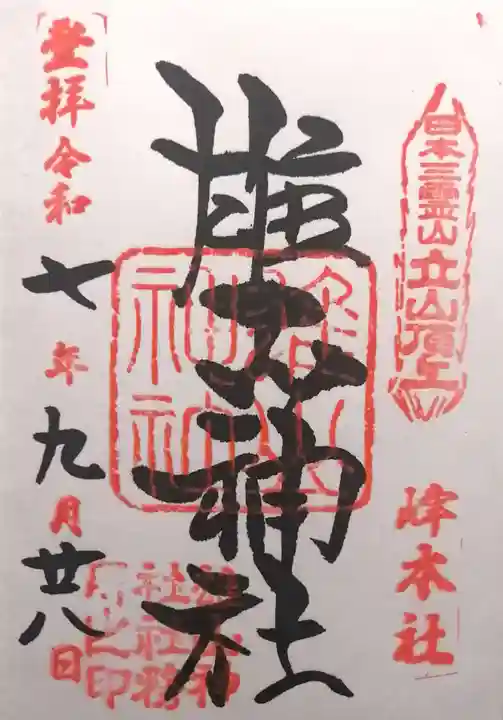 日本三霊山立山頂上
峰本社
雄山神社
雄山
神社
雄山神
社社務
所之印
登拝令和七年九月廿八日